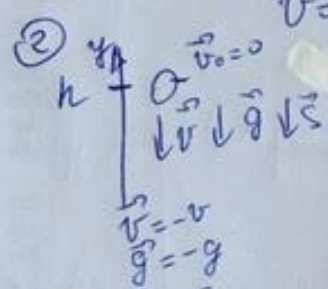 v=
② y
v⃗₀=0
h
↓v⃗ ↓g⃗ ↓s⃗
v⃗=-v
g⃗=-g